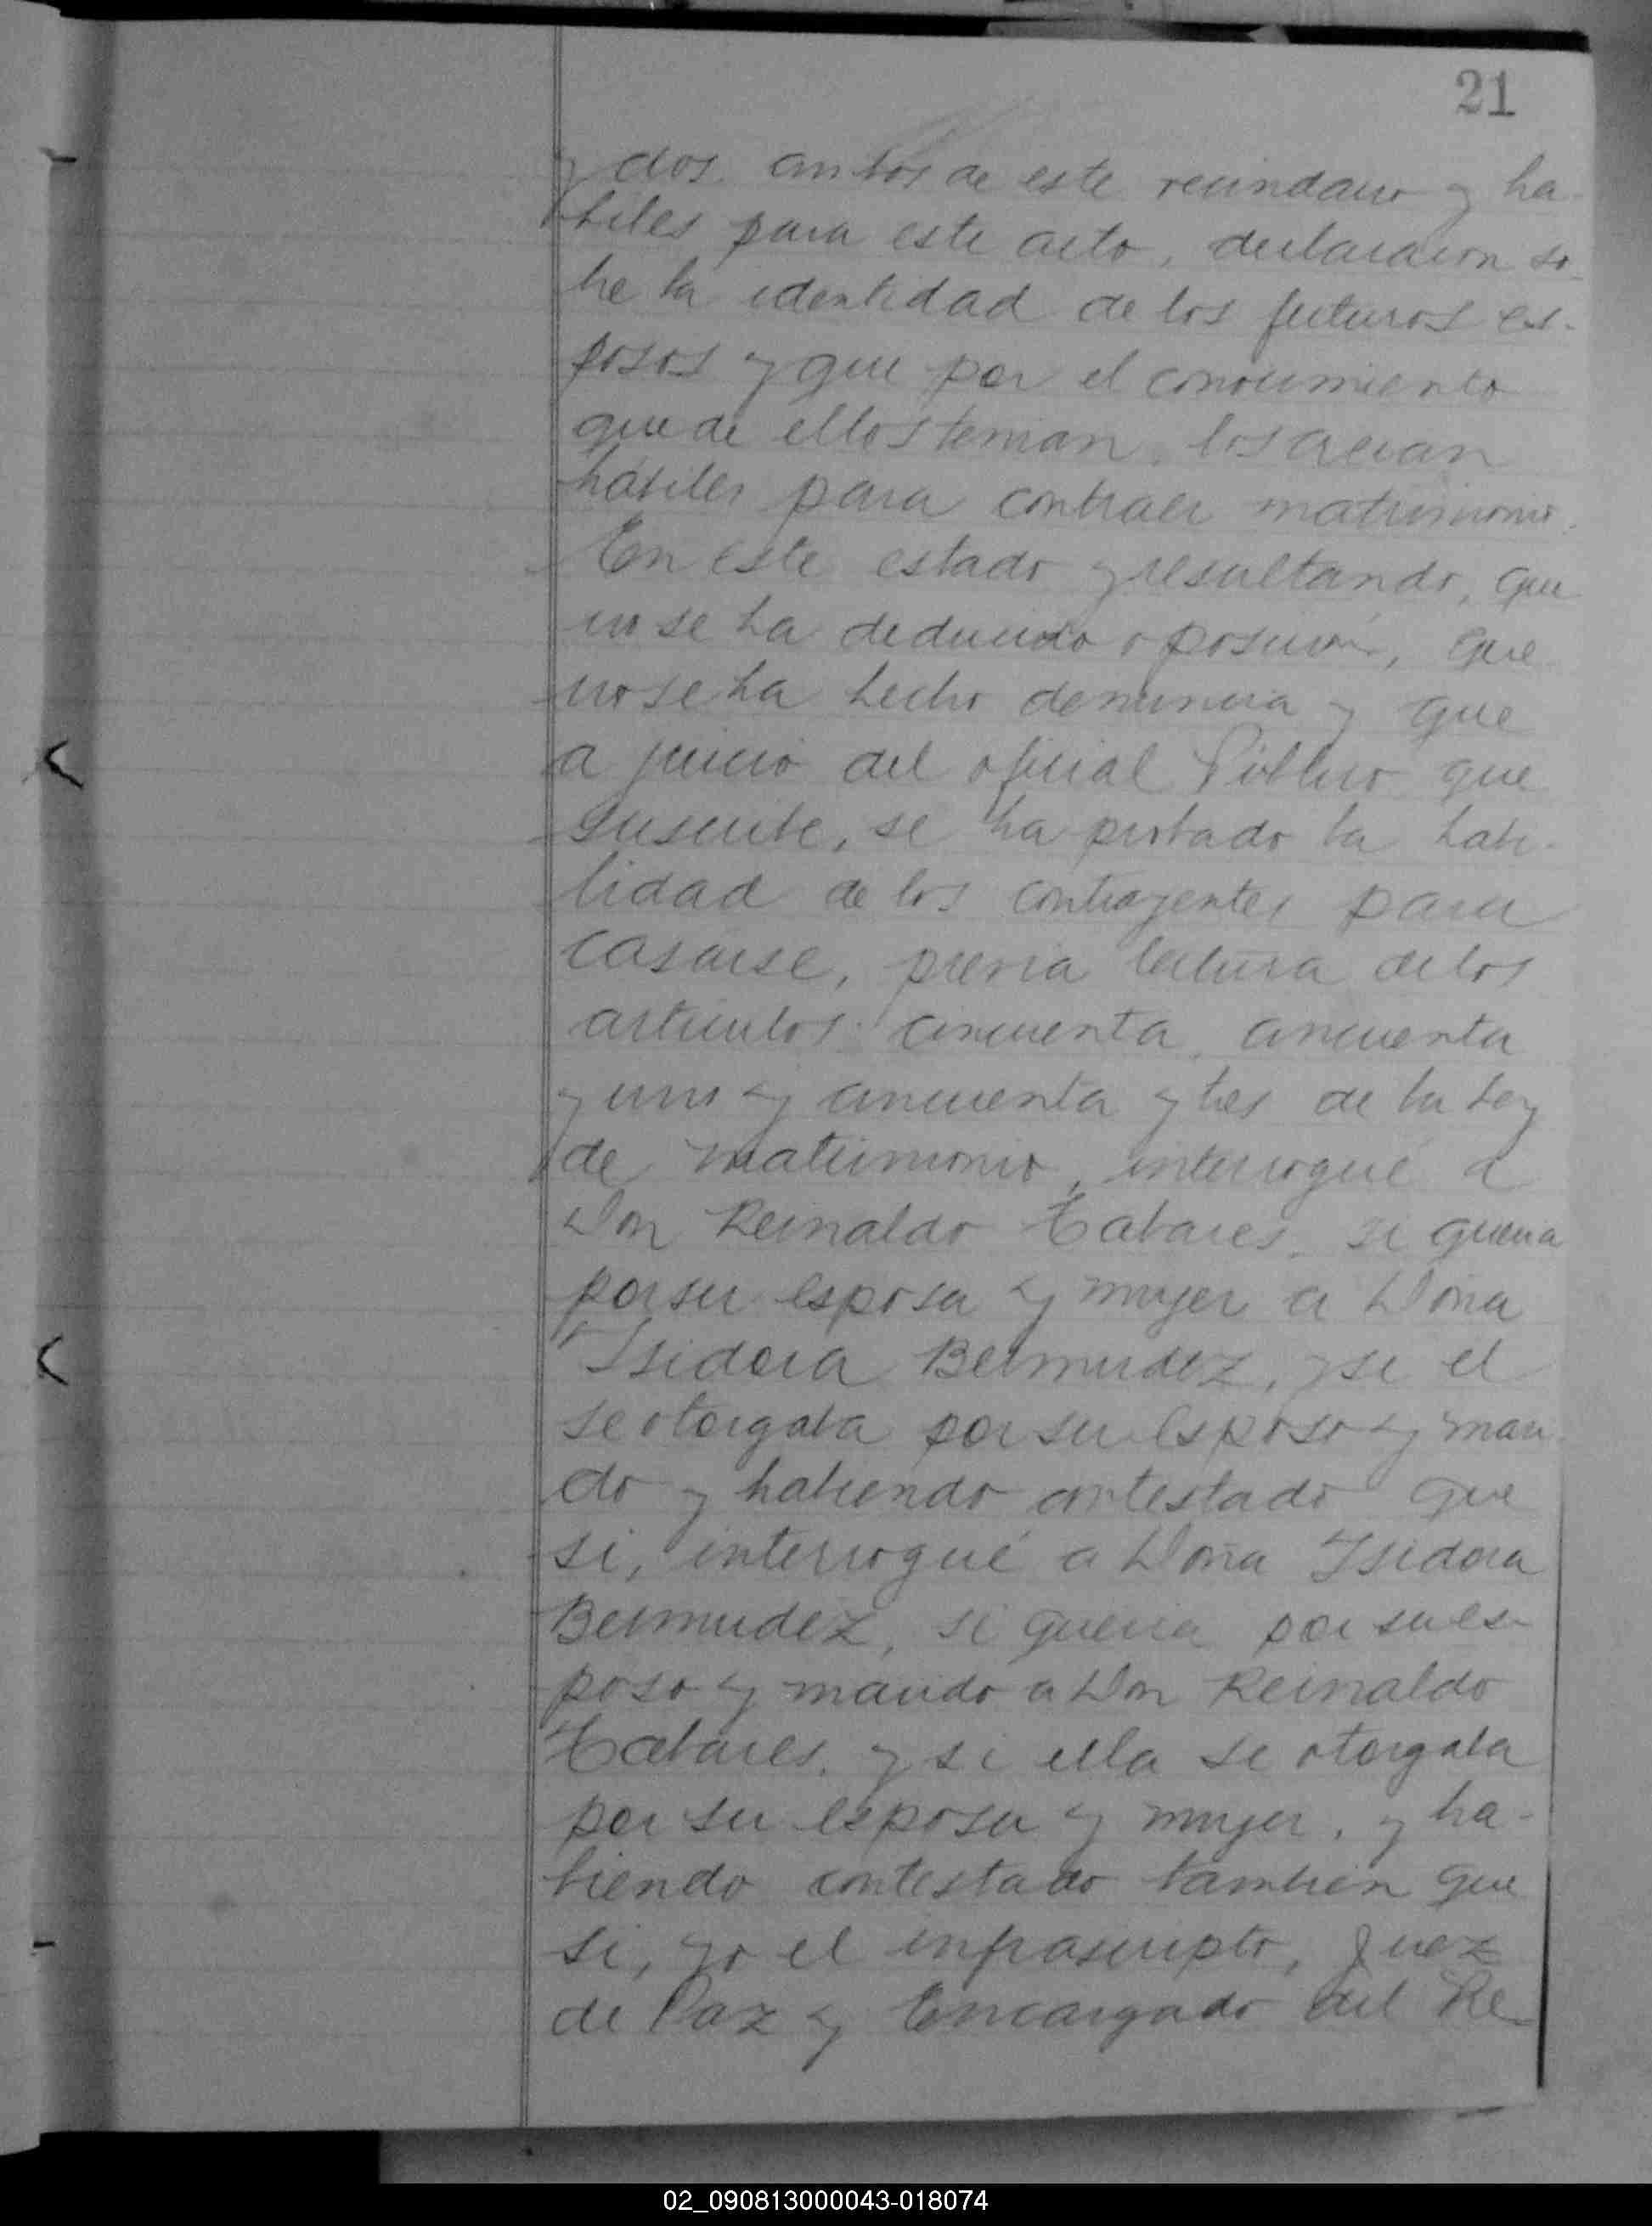 21
y dos ambos de este vecindario y ha-
biles para este acto, declararon so-
bre la identidad de los futuros es-
posos y que por el conocimiento
que de ellos tenian, los creian
habiles para contraer matrimonio.
En este estado y resultando, que
no se ha deducido oposicion, que
no se ha hecho denuncia y que
a juicio del oficial Público que
suscribe, se ha probado la habi-
lidad de los contrayentes para
casarse, previa lectura de los
articulos cincuenta, cincuenta
y uno y cincuenta y tres de la Ley
de matrimonio, interrogué a
Don Reinaldo Tabares, si queria
por su esposa y mujer a Doña
Isidora Bermudez, y si el
se otorgaba por su esposo y mari-
do y habiendo contestado que
si, interrogué a Doña Isidora
Bermudez, si queria por su es-
poso y marido a Don Reinaldo
Tabares, y si ella se otorgaba
por su esposa y mujer, y ha-
biendo contestado tambien que
si, yo el infrascripto, Juez
de Paz y Encargado del Re-
02_090813000043-018074